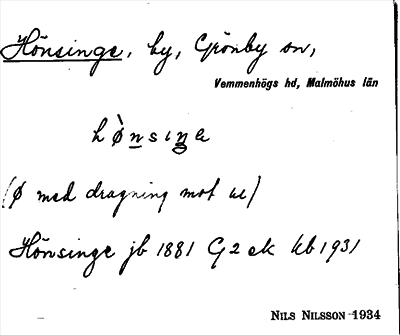 Hönsinge, by, Grönby sn,
Vemmenhögs hd, Malmöhus län
hø̀nsıŋe
(ø med dragning mot u)
Hönsinge jb 1881 G2 ek kb 1931
NILS NILSSON 1934